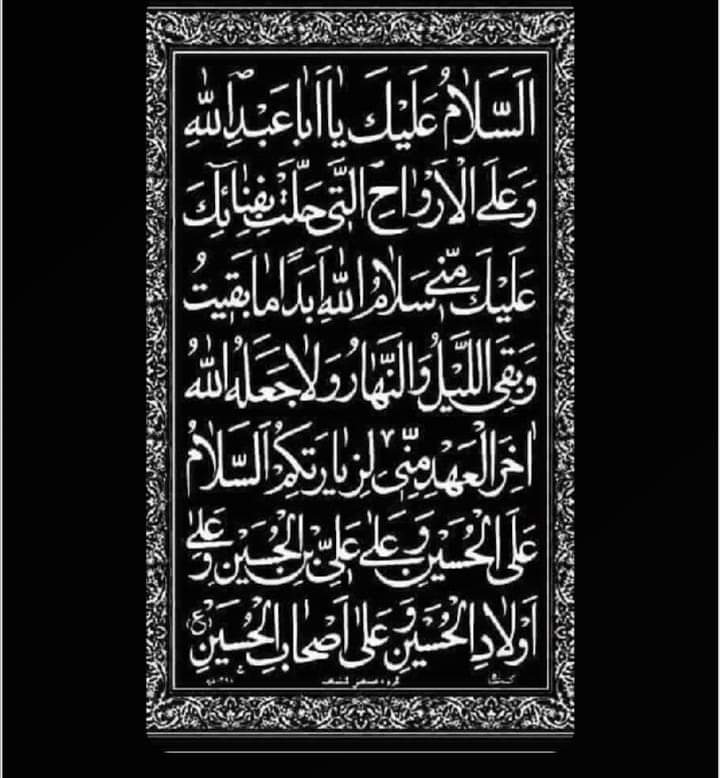 اَلسَّلامُ عَلَيْكَ يا اَبا عَبْدِاللهِ
وَعَلَى الْاَرْواحِ الَّتى حَلَّتْ بِفِنائِكَ
عَلَيْكَ مِنّى سَلامُ اللهِ اَبَدًا ما بَقيتُ
وَبَقِىَ اللَّيْلُ وَالنَّهارُ وَلا جَعَلَهُ اللهُ
اخِرَ الْعَهْدِ مِنّى لِزِيارَتِكُمْ اَلسَّلامُ
عَلَى الْحُسَيْنِ وَعَلى عَلِىِّ بْنِ الْحُسَيْنِ وَعَلى
اَوْلادِ الْحُسَيْنِ وَعَلى اَصْحابِ الْحُسَيْنِ (ع)